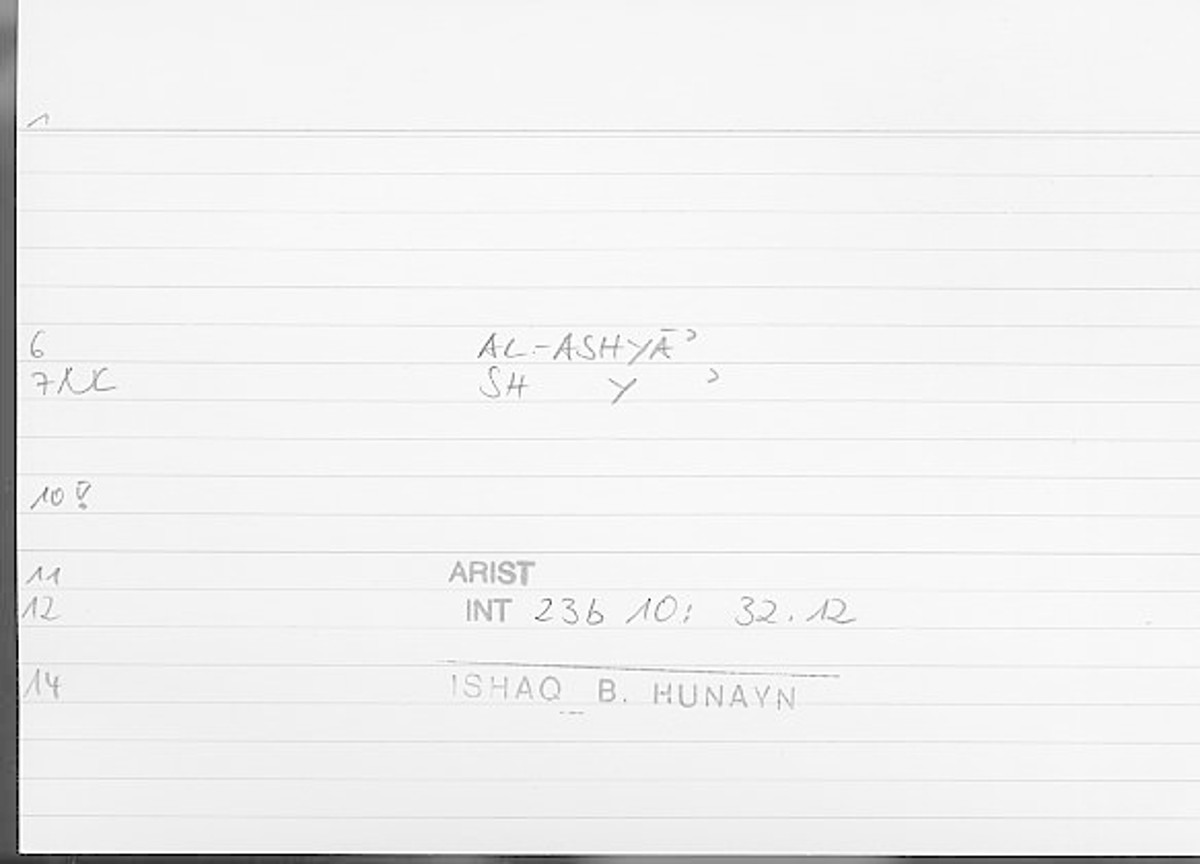 1
6 AL-ASHYĀʾ
7 NC SH Y ʾ
10 !
11 ARIST
12 INT 23b 10: 32.12
14 ISHAQ B. HUNAYN